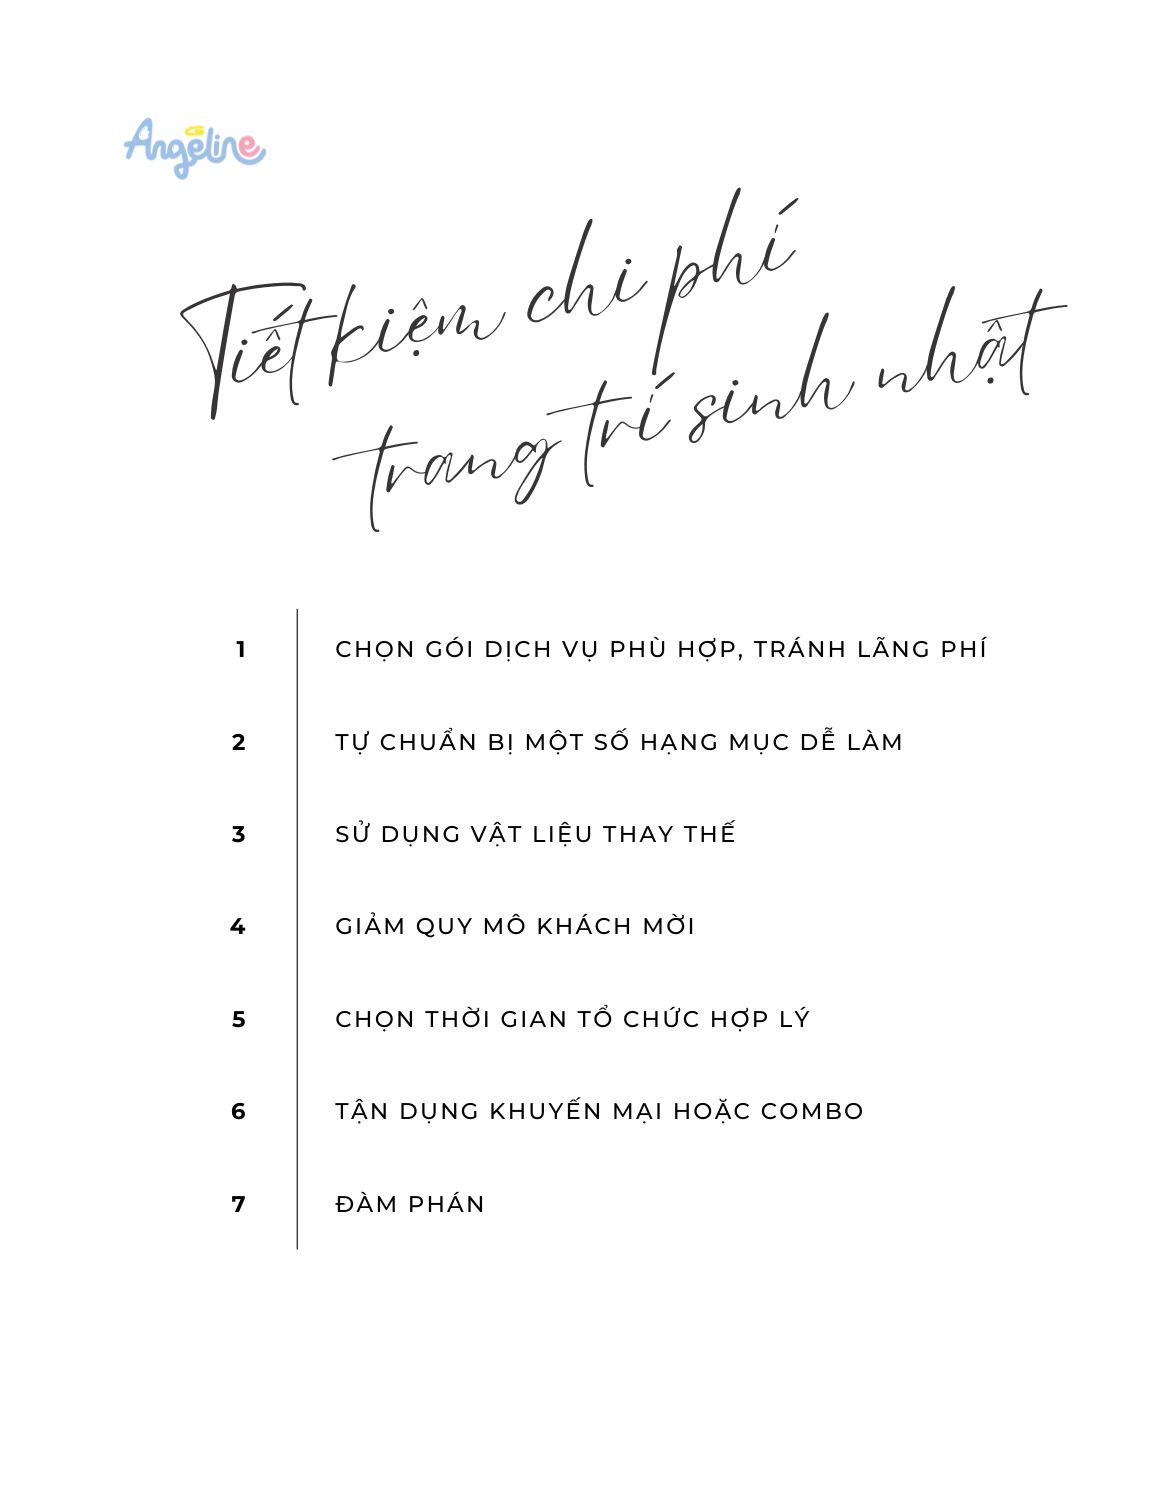 Angeline
Tiết kiệm chi phí
trang trí sinh nhật
1 CHỌN GÓI DỊCH VỤ PHÙ HỢP, TRÁNH LÃNG PHÍ
2 TỰ CHUẨN BỊ MỘT SỐ HẠNG MỤC DỄ LÀM
3 SỬ DỤNG VẬT LIỆU THAY THẾ
4 GIẢM QUY MÔ KHÁCH MỜI
5 CHỌN THỜI GIAN TỔ CHỨC HỢP LÝ
6 TẬN DỤNG KHUYẾN MẠI HOẶC COMBO
7 ĐÀM PHÁN